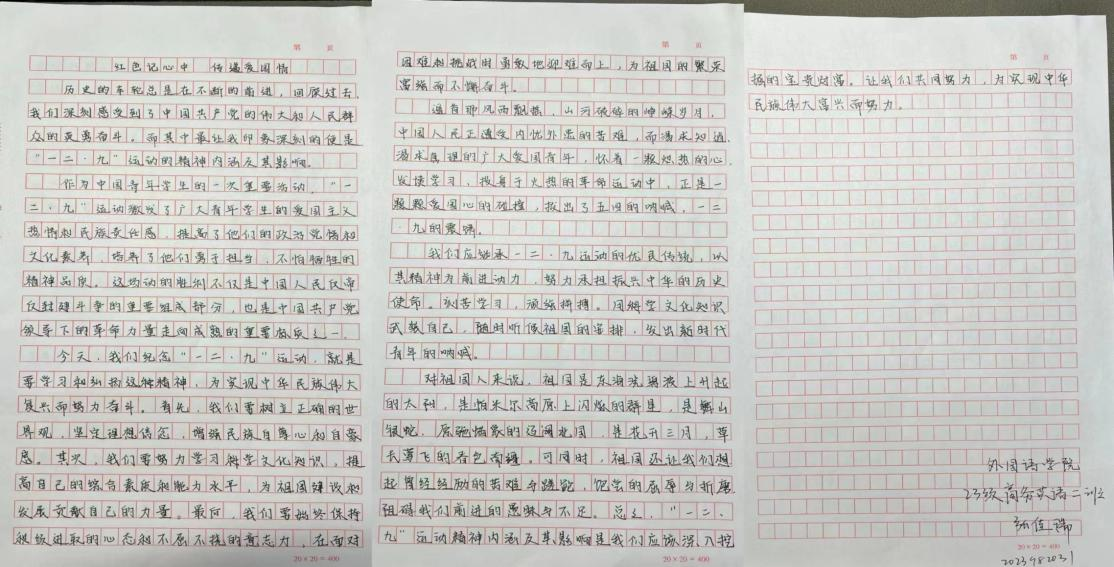 第 页
红色记心中 传递爱国情
历史的车轮总是在不断的前进，回顾过去，
我们深刻感受到了中国共产党的伟大和人民群
众的英勇奋斗。而其中最让我印象深刻的便是
“一二·九”运动的精神内涵及其影响。
作为中国青年学生的一次重要活动，“一
二·九”运动激发了广大青年学生的爱国主义
热情和民族责任感，提高了他们的政治觉悟和
文化素养，培养了他们勇于担当，不怕牺牲的
精神品质。这场动的胜利不仅是中国人民反帝
反封建斗争的重要组成部分，也是中国共产党
领导下的革命力量走向成熟的重要标质之一。
今天，我们纪念“一二·九”运动，就是
要学习和弘扬这种精神，为实现中华民族伟大
复兴而努力奋斗。首先，我们要树立正确的世
界观，坚定理想信念，增强民族自尊心和自豪
感。其次，我们要努力学习科学文化知识，提
高自己的综合素质和能力水平，为祖国建设和
发展贡献自己的力量。最后，我们要始终保持
积极进取的心态和不屈不挠的意志力，在面对
20×20＝400
第 页
困难和挑战时勇敢地迎难而上，为祖国的繁荣
富强而不懈奋斗。
遥看那风雨飘摇，山河破碎的峥嵘岁月，
中国人民正遭受内忧外患的苦难，而渴求知道，
渴求真理的广大爱国青年，怀着一颗炽热的心，
发愤学习，投身于火热的革命运动中，正是一
颗颗爱国心的碰撞，掀出了五四的呐喊，一二
·九的轰鸣。
我们应继承一二·九运动的优良传统，以
其精神为前进动力，努力承担振兴中华的历史
使命。刻苦学习，顽强拼搏。用科学文化知识
武装自己，随时听候祖国的安排，发出新时代
青年的呐喊。
对祖国人来说，祖国是东海浩瀚波上升起
的太阳，是帕米尔高原上闪烁的群星，是舞山
银蛇，原驰蜡象的辽阔北国，是花开三月，草
长莺飞的春色南疆。可同时，祖国还让我们想
起曾经经历的苦难与蹉跎，饱尝的屈辱与折磨
阻碍我们前进的愚昧与不足。总之，“一二·
九”运动精神内涵及其影响是我们应该深入挖
20×20＝400
第 页
掘的宝贵财富。让我们共同努力，为实现中华
民族伟大富兴而努力。
外国语学院
23级商务英语二班
20×20＝400